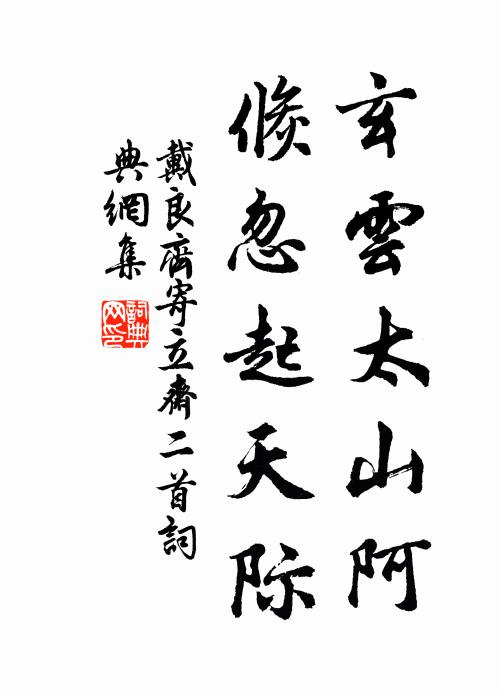 玄雲太山阿
倐忽起天际
戴良齊寄立齋二首詞
典網集
詞典網印